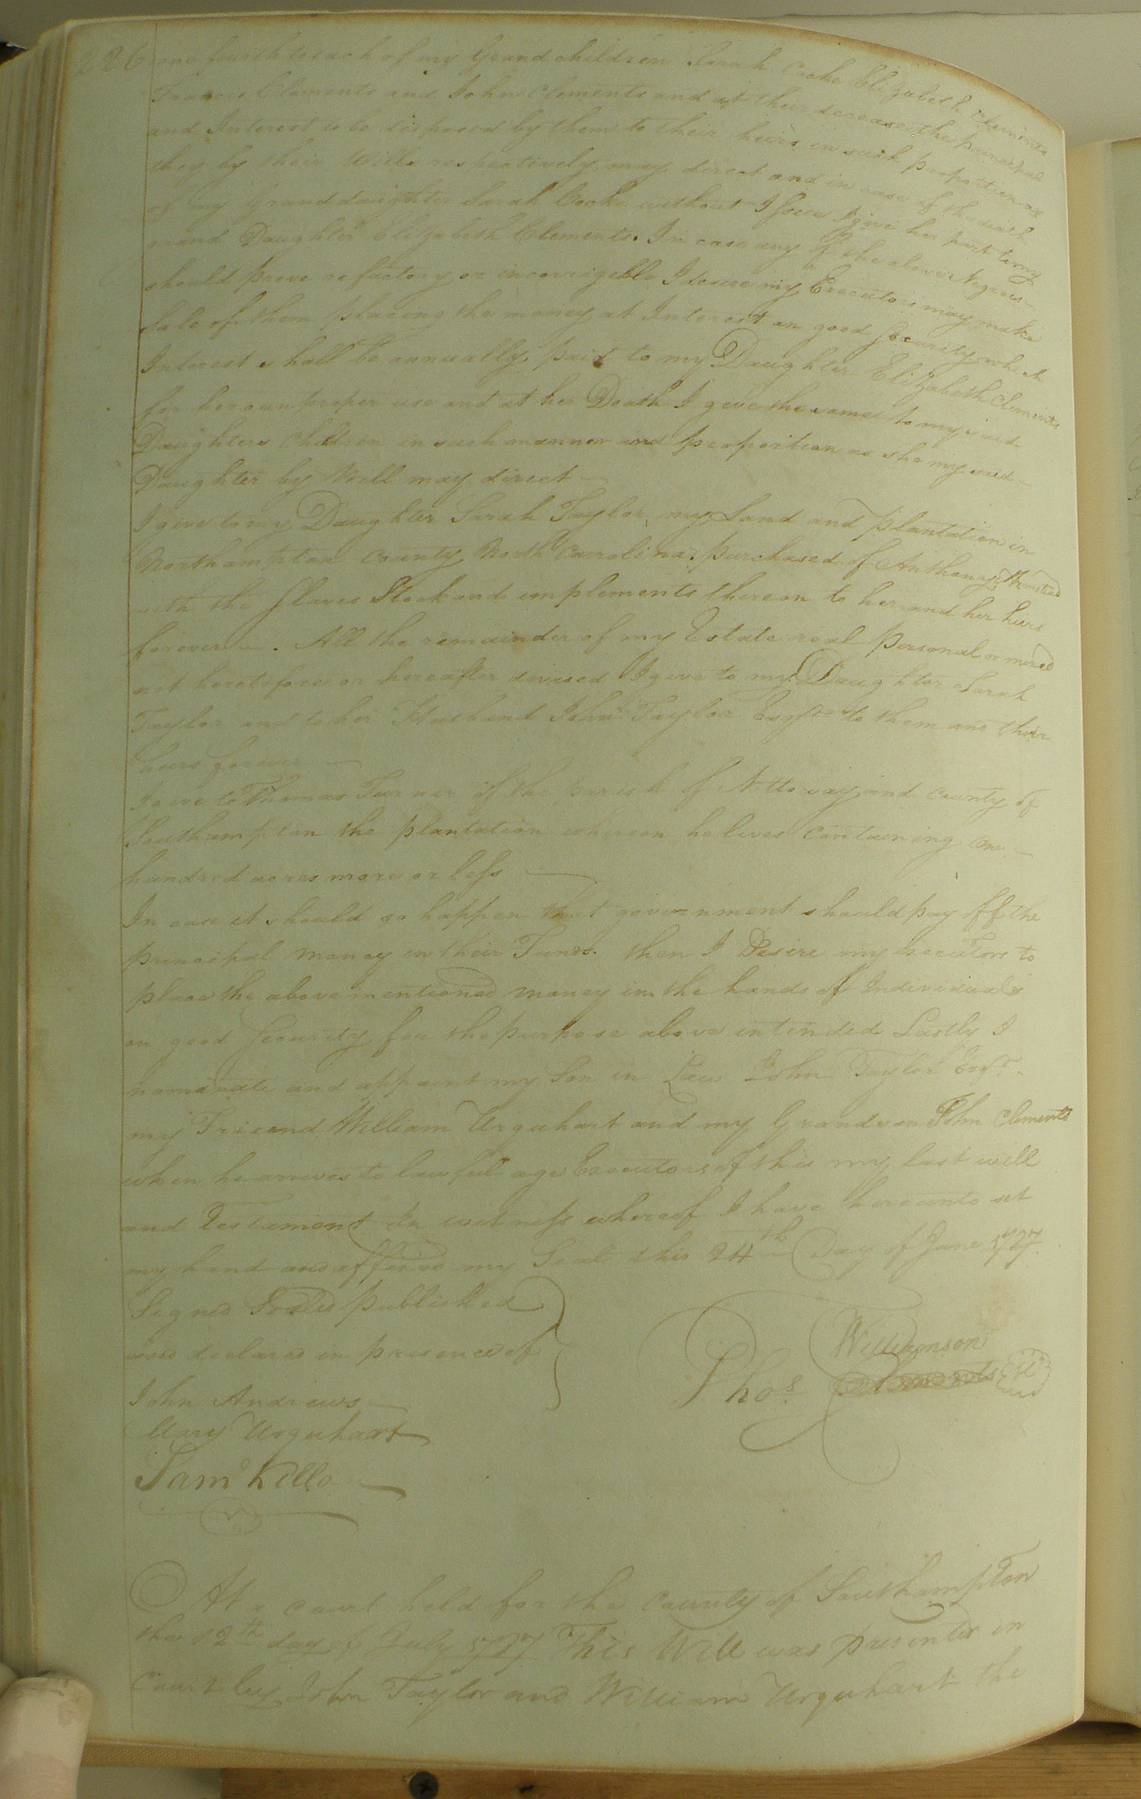 226 one fourth to each of my Grand children Sarah Cocke Elizabeth Clements
Francis Clements and John Clements and at their decease the principal
and Interest to be disposed by them to their heirs in such proportion as
they by their Wills respectively may direct and in case of the death
of my Grand daughter Sarah Cocke without Issue I give her part to my
Grand Daughter Elizabeth Clements. In case any of the above Negroes
should prove refactory or incorrigeble I desire my Executors may make
Sale of them placing the money at Interest on good Security which
Interest shall be annually paid to my Daughter Elizabeth Clements
for her own proper use and at her Death I give the same to my said
Daughters Children in such manner and proportion as she my said
Daughter by Will may direct
I give to my Daughter Sarah Taylor my Land and plantation in
Northampton County North Carrolina purchased of Anthony
with the Slaves Stock and implements thereon to her and her heirs
forever. All the remainder of my Estate real Personal or mixed
not heretofore or hereafter devised I give to my Daughter Sarah
Taylor and to her Husband John Taylor Esqr. to them and their
heirs forever
I give to Thomas Turner of the parish of Nottoway and County of
Southampton the plantation whereon he lives Containing one
hundred acres more or less
In case it should so happen that government should pay off the
principal money in their Funds. then I Desire my Executors to
place the above mentioned money in the hands of Individuals
on good Security for the purpose above intended Lastly I
nominate and appoint my Son in Law John Taylor Esqr.
my Friend William Urquhart and my Grandson John Clements
when he arrives to lawful age Executors of this my last will
and Testament In witness whereof I have hereunto set
my hand and affixed my Seal this 24th Day of June
Signed Sealed published
and declared in presence of
John Andrews
Mary Urquhart
Saml Kello
Williamson
Thos.
At a court held for the County of Southampton
the 12th day of July This Will was presented in
Court by John Taylor and William Urquhart the